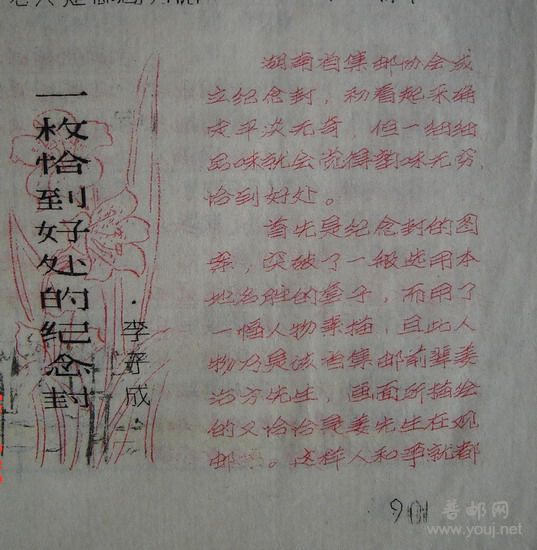 一枚恰到好处的纪念封
·李好成
湖南省集邮协会成
立纪念封，初看起来确
实平淡无奇，但一细细
品味就会觉得韵味无穷，
恰到好处。
首先是纪念封的图
案，突破了一般选用本
地名胜的套子，而用了
一幅人物素描，且此人
物乃是该省集邮前辈姜
治方先生，画面所描绘
的又恰恰是姜先生在观
邮。这样人和事就都
901
普邮网
www.youj.net